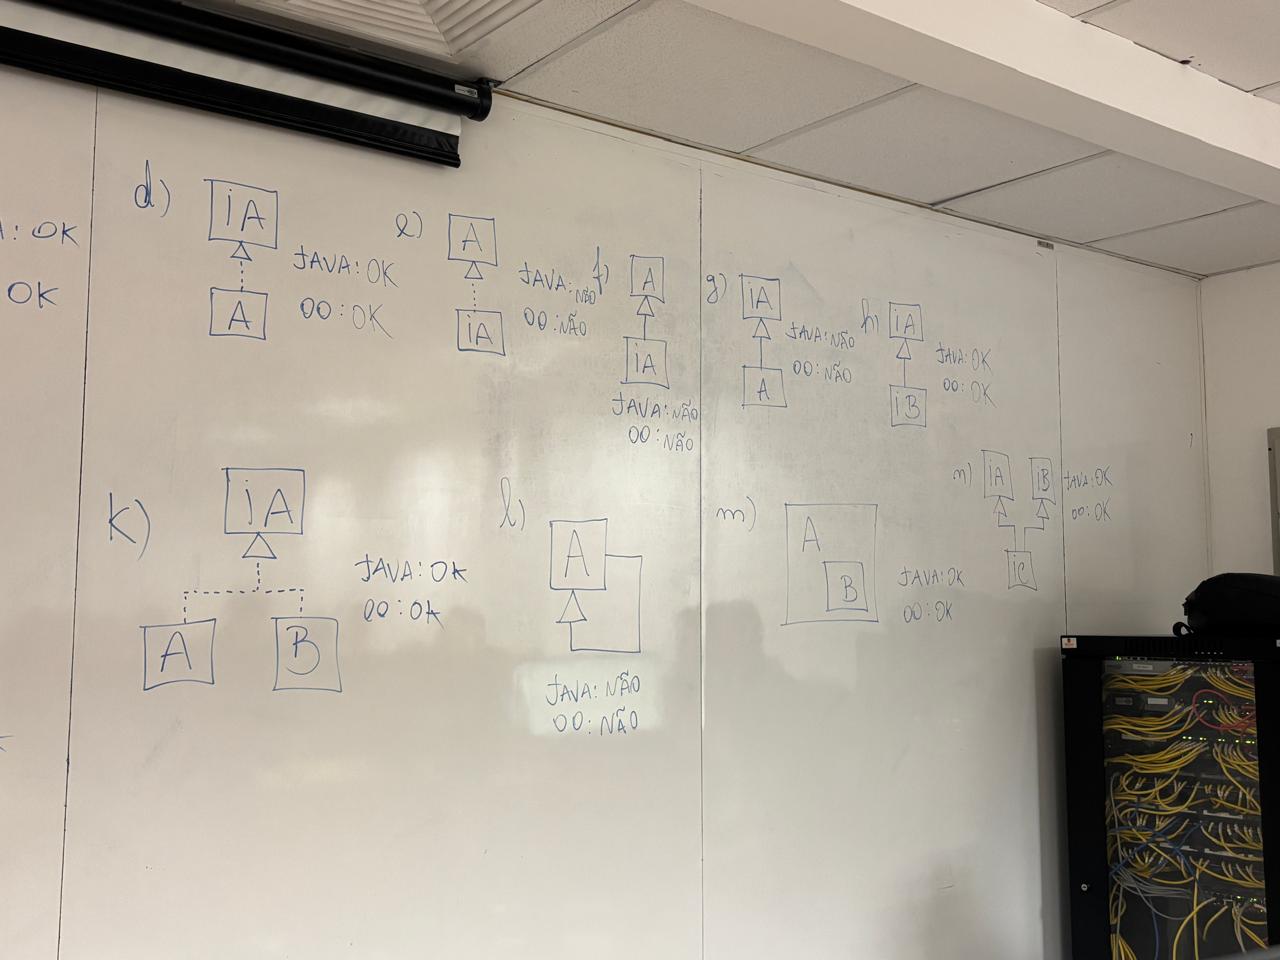 A: OK
OK
d)
iA
A
JAVA: OK
OO: OK
e)
A
iA
JAVA: NÃO
OO: NÃO
f)
A
iA
JAVA: NÃO
OO: NÃO
g)
iA
A
JAVA: NÃO
OO: NÃO
h)
iA
iB
JAVA: OK
OO: OK
k)
iA
A B
JAVA: OK
OO: OK
l)
A
JAVA: NÃO
OO: NÃO
m)
A
B
JAVA: OK
OO: OK
n)
iA iB
iC
JAVA: OK
OO: OK